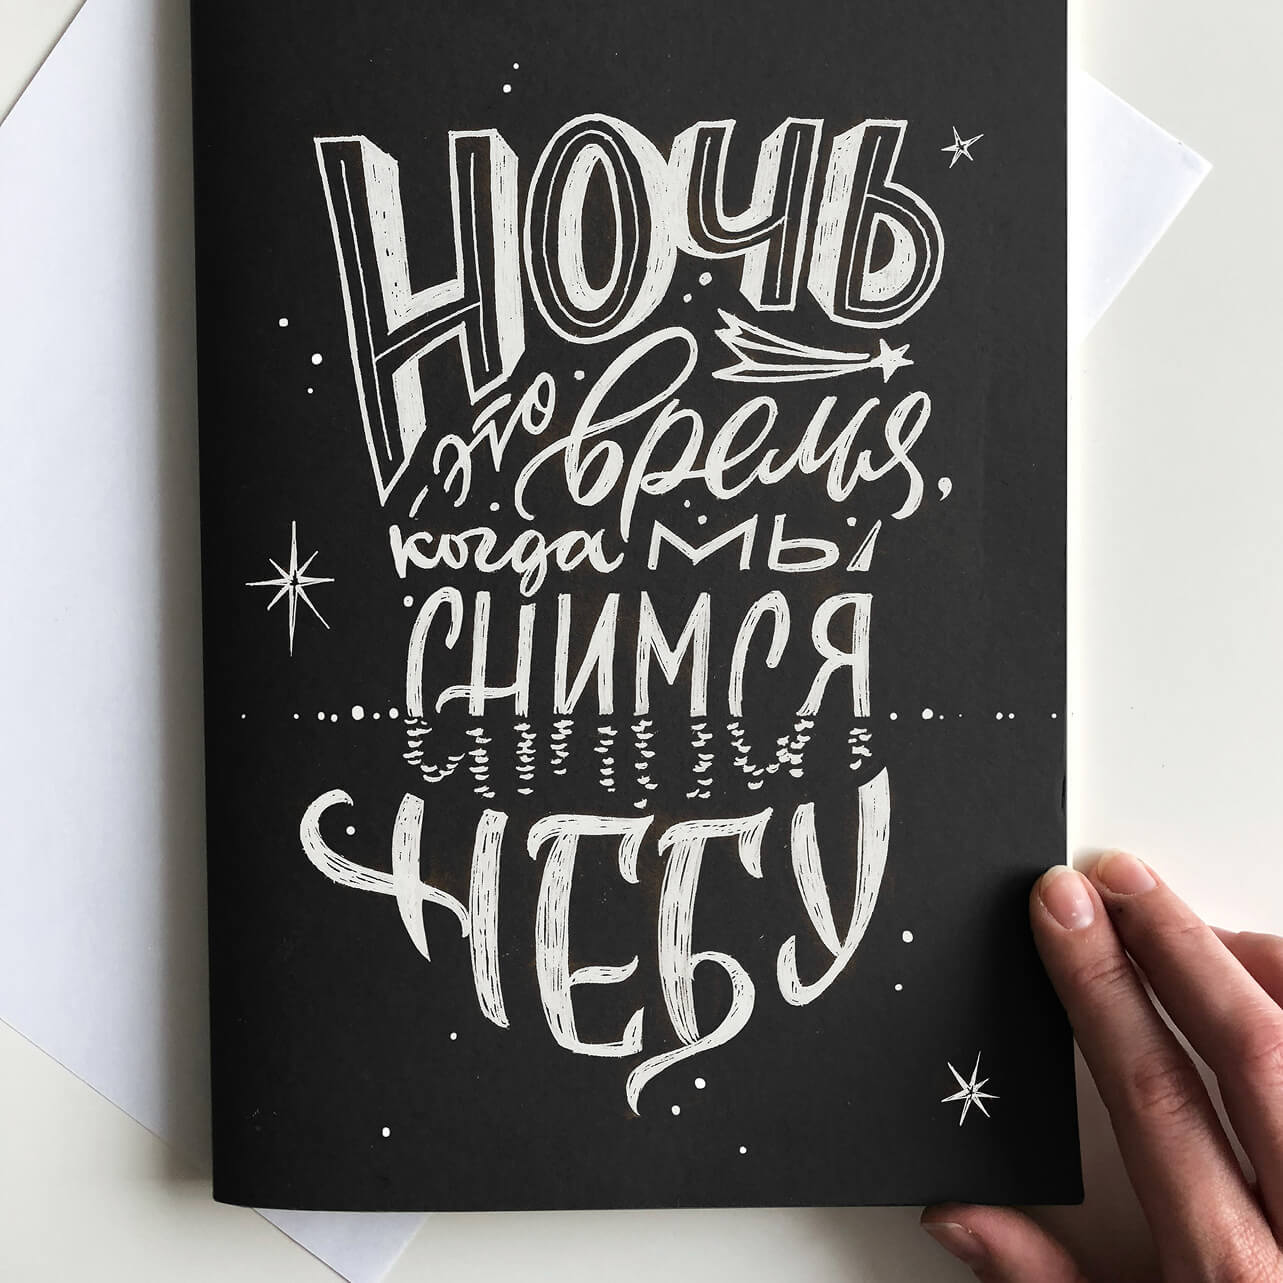 Ночь
это время,
когда мы
снимся
небу